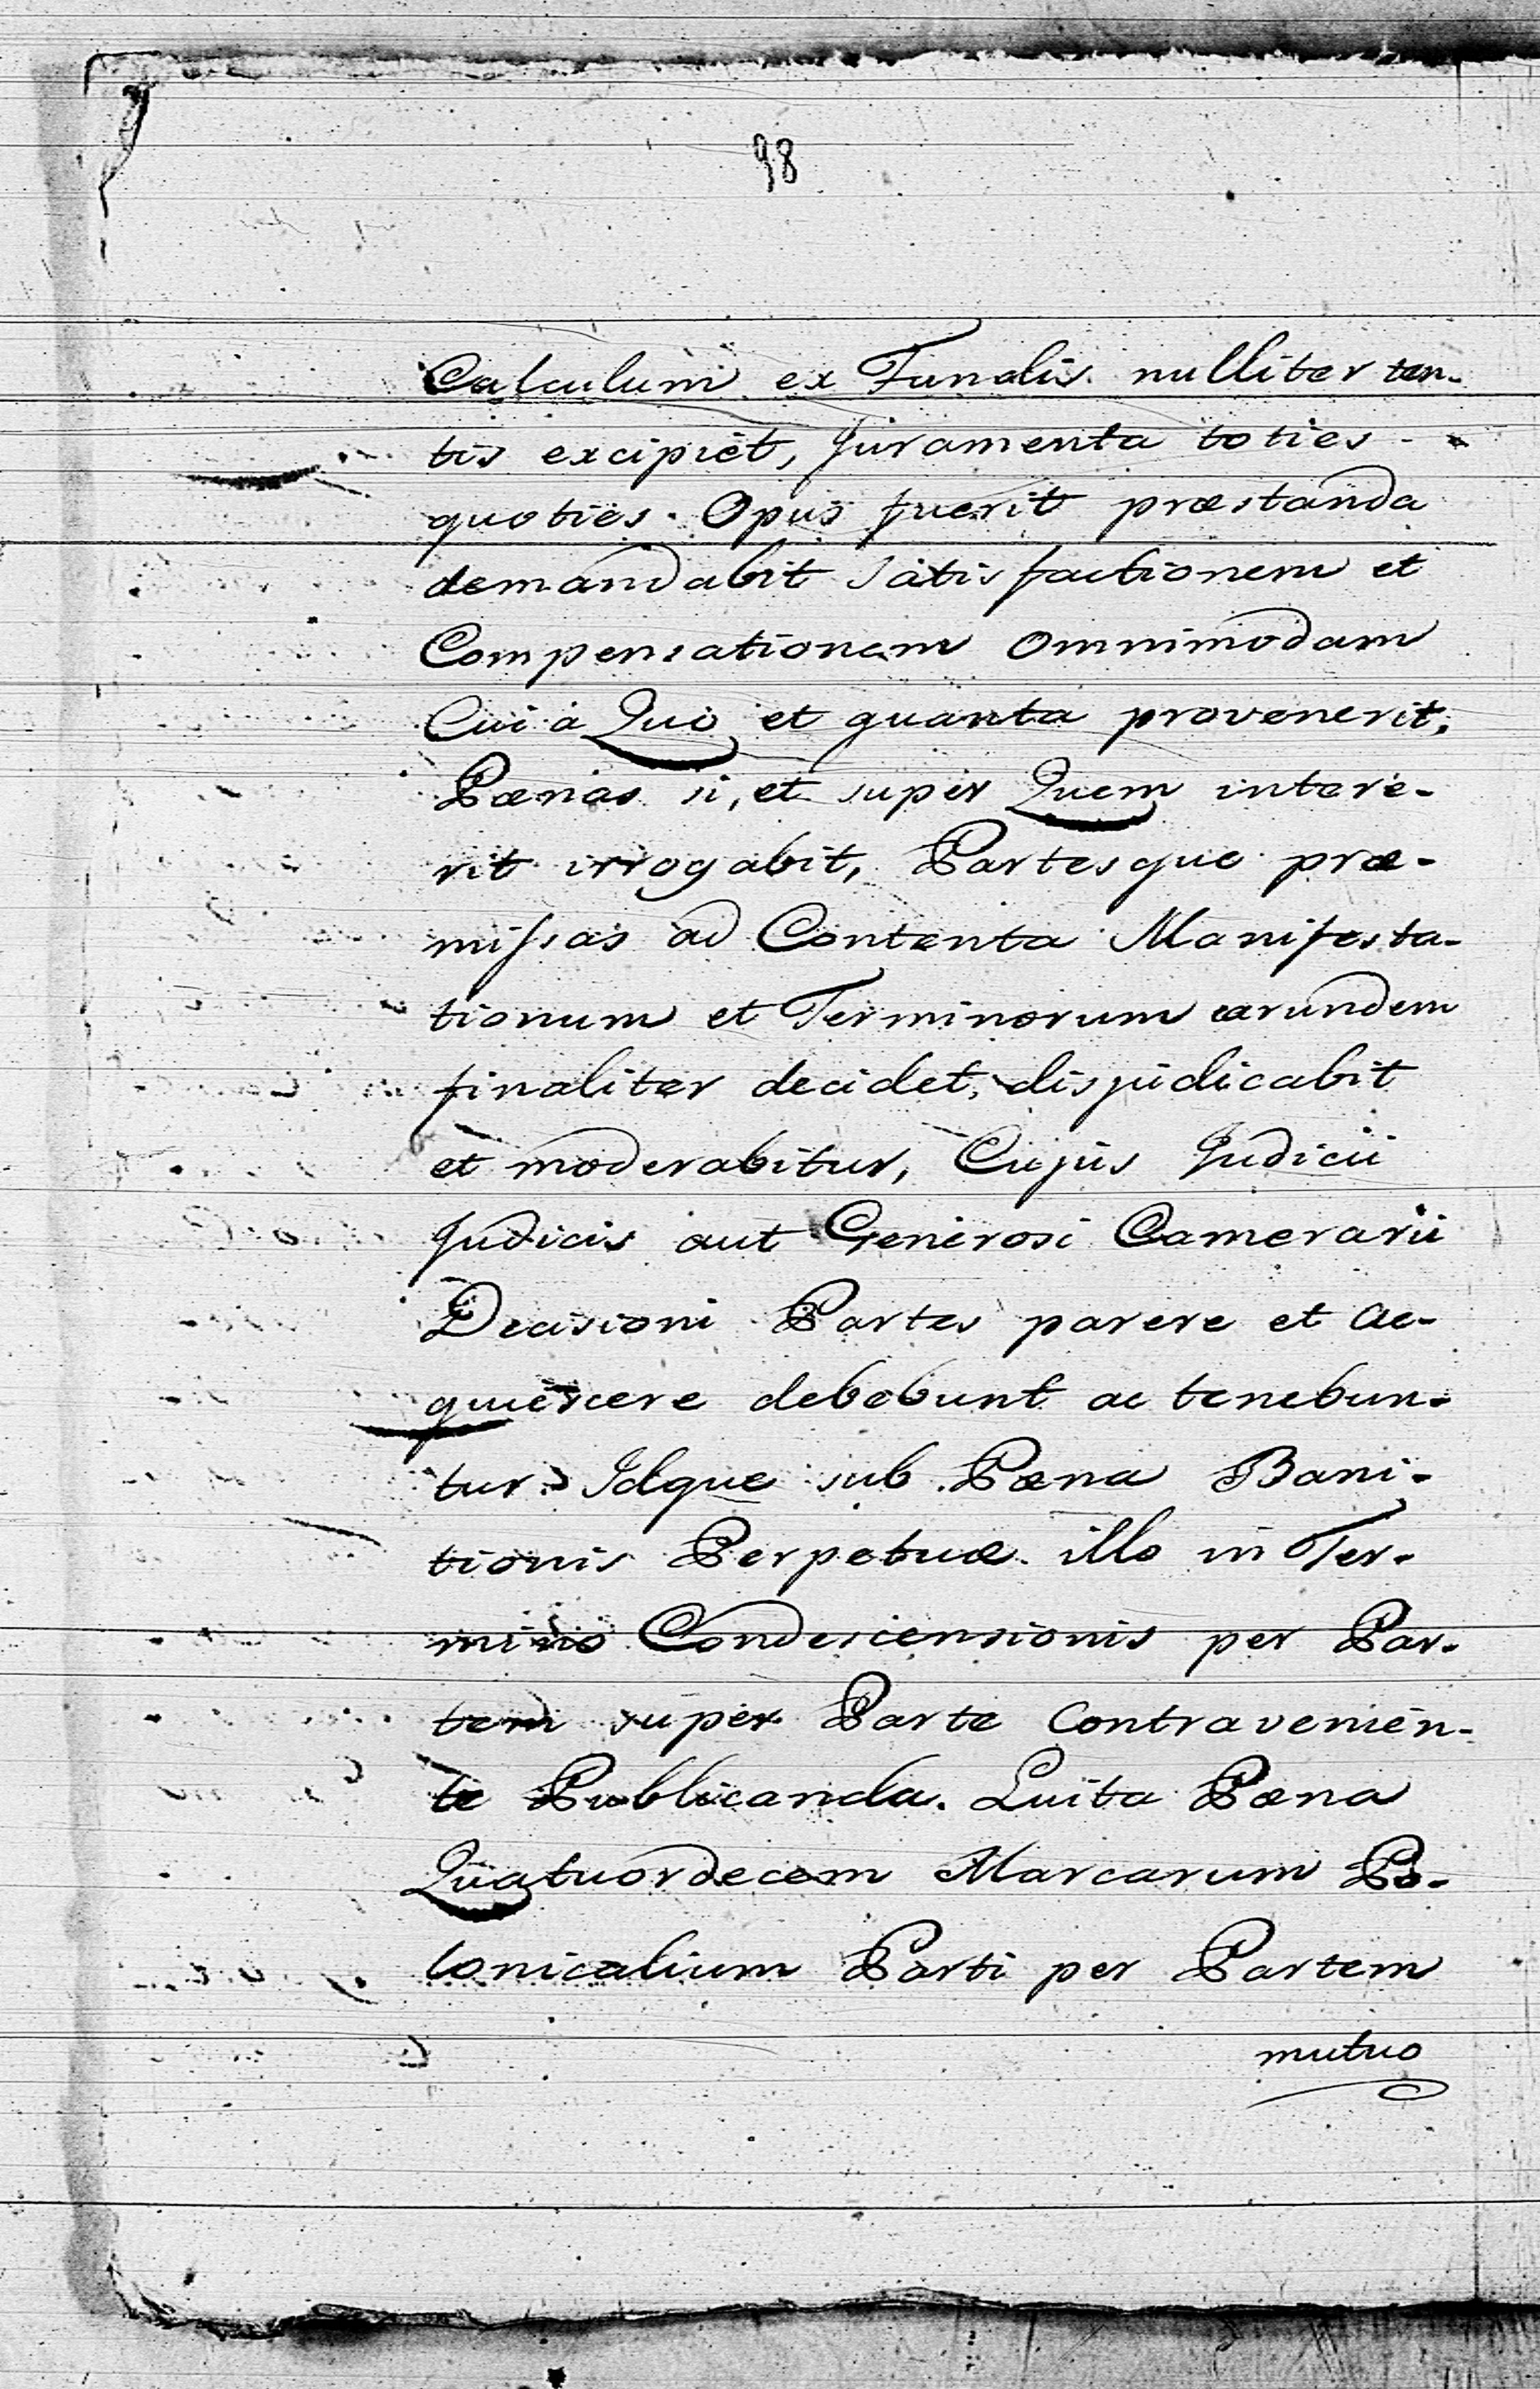 98
Calculum ex Fundis nulliter ten-
tis excipiet, Juramenta toties
quoties Opus fuerit præstanda
demandabit satisfactionem et
Compensationem omnimodam
Cui à Quo et quanta provenerit,
Pænas si, et super Quem intere-
rit irrogabit, Partesque præ-
missas ad Contenta Manifesta-
tionum et Terminorum earundem
finaliter decidet, disjudicabit
et moderabitur, Cujus Judicii
Judicis aut Generosi Camerarii
Decisioni Partes parere et ac-
quiescere debebunt ac tenebun-
tur Idque sub Pæna Bani-
tionis Perpetuæ illo in Ter-
mino Condescensionis per Par-
tem super Parte Contravenien-
te Publicanda. Luita Pæna
Quatuordecem Marcarum Po-
lonicalium Parti per Partem
mutuo